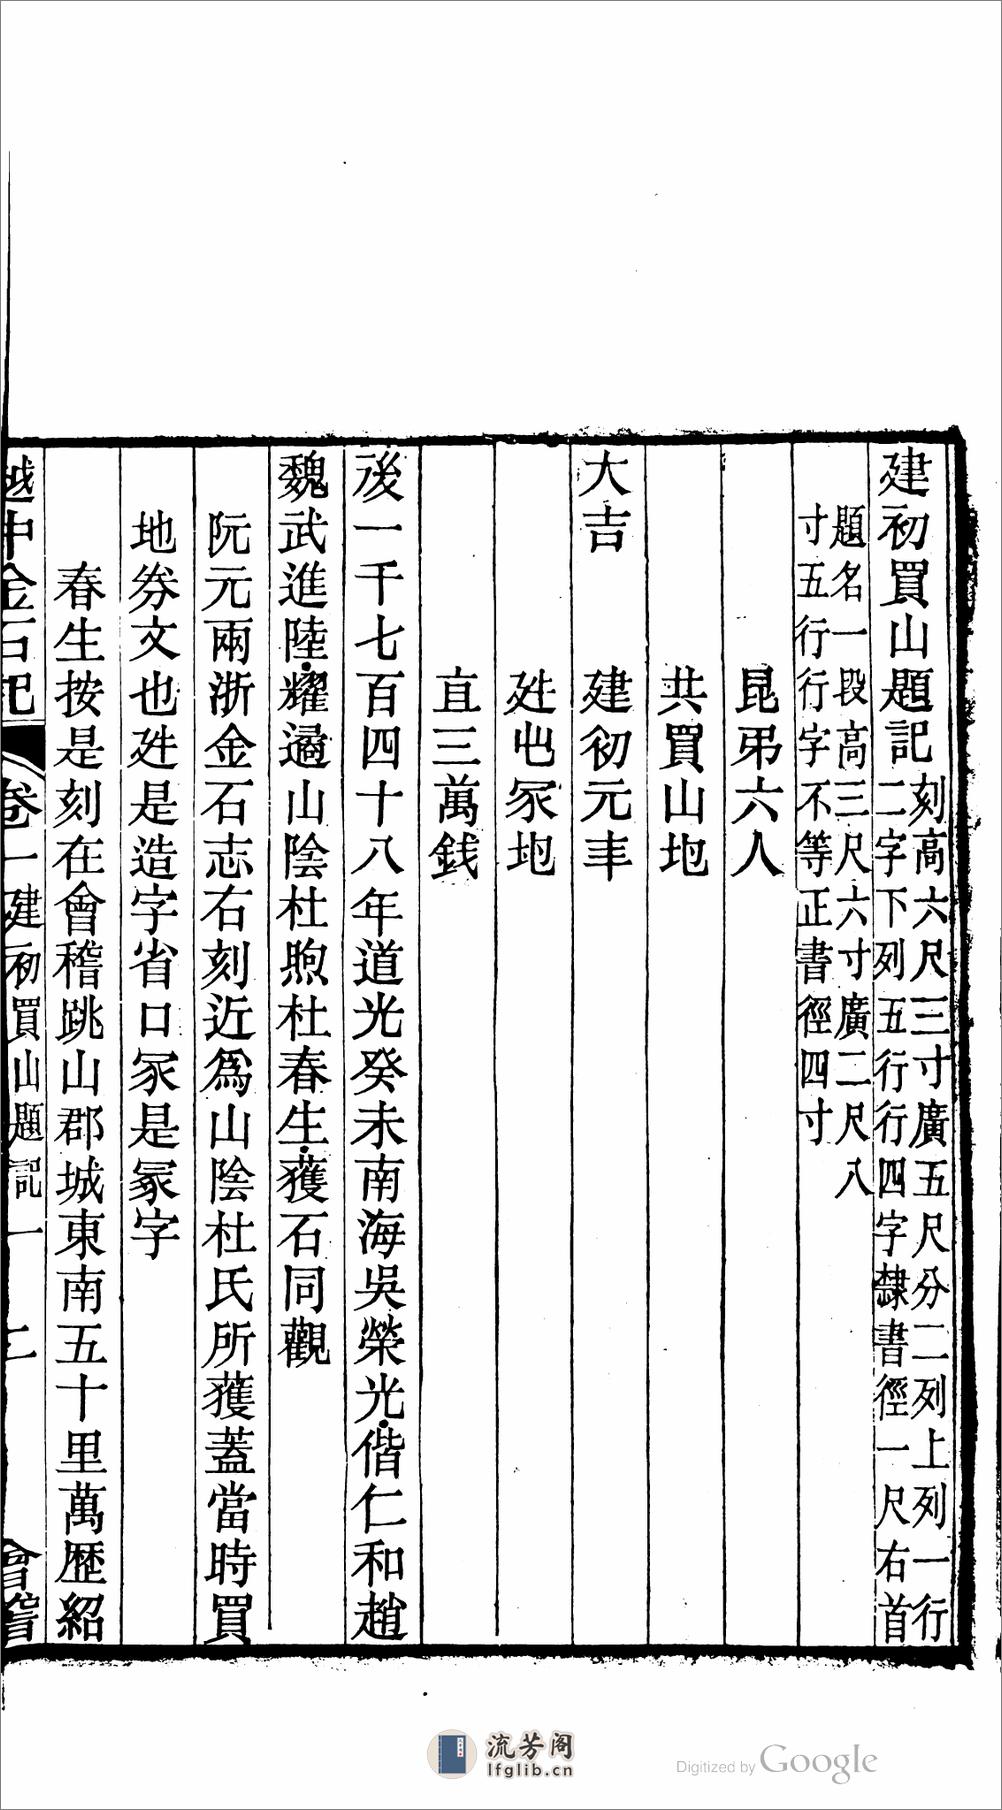 建初買山題記刻高六尺三寸廣五尺分二列上列一行
二字下列五行行四字隸書徑一尺右首
題名一段高三尺六寸廣二尺八
寸五行行字不等正書徑四寸
昆弟六人
共買山地
大吉 建初元年
造此冢地
直三萬錢
後一千七百四十八年道光癸未南海吳榮光偕仁和趙
魏武進陸耀遹山陰杜煦杜春生獲石同觀
阮元兩浙金石志右刻近爲山陰杜氏所獲蓋當時買
地券文也𡉚是造字省口冡是冢字
春生按是刻在會稽跳山郡城東南五十里萬歷紹
越中金石記 卷一 建初買山題記 一
流芳阁
lfglib.cn
Digitized by Google